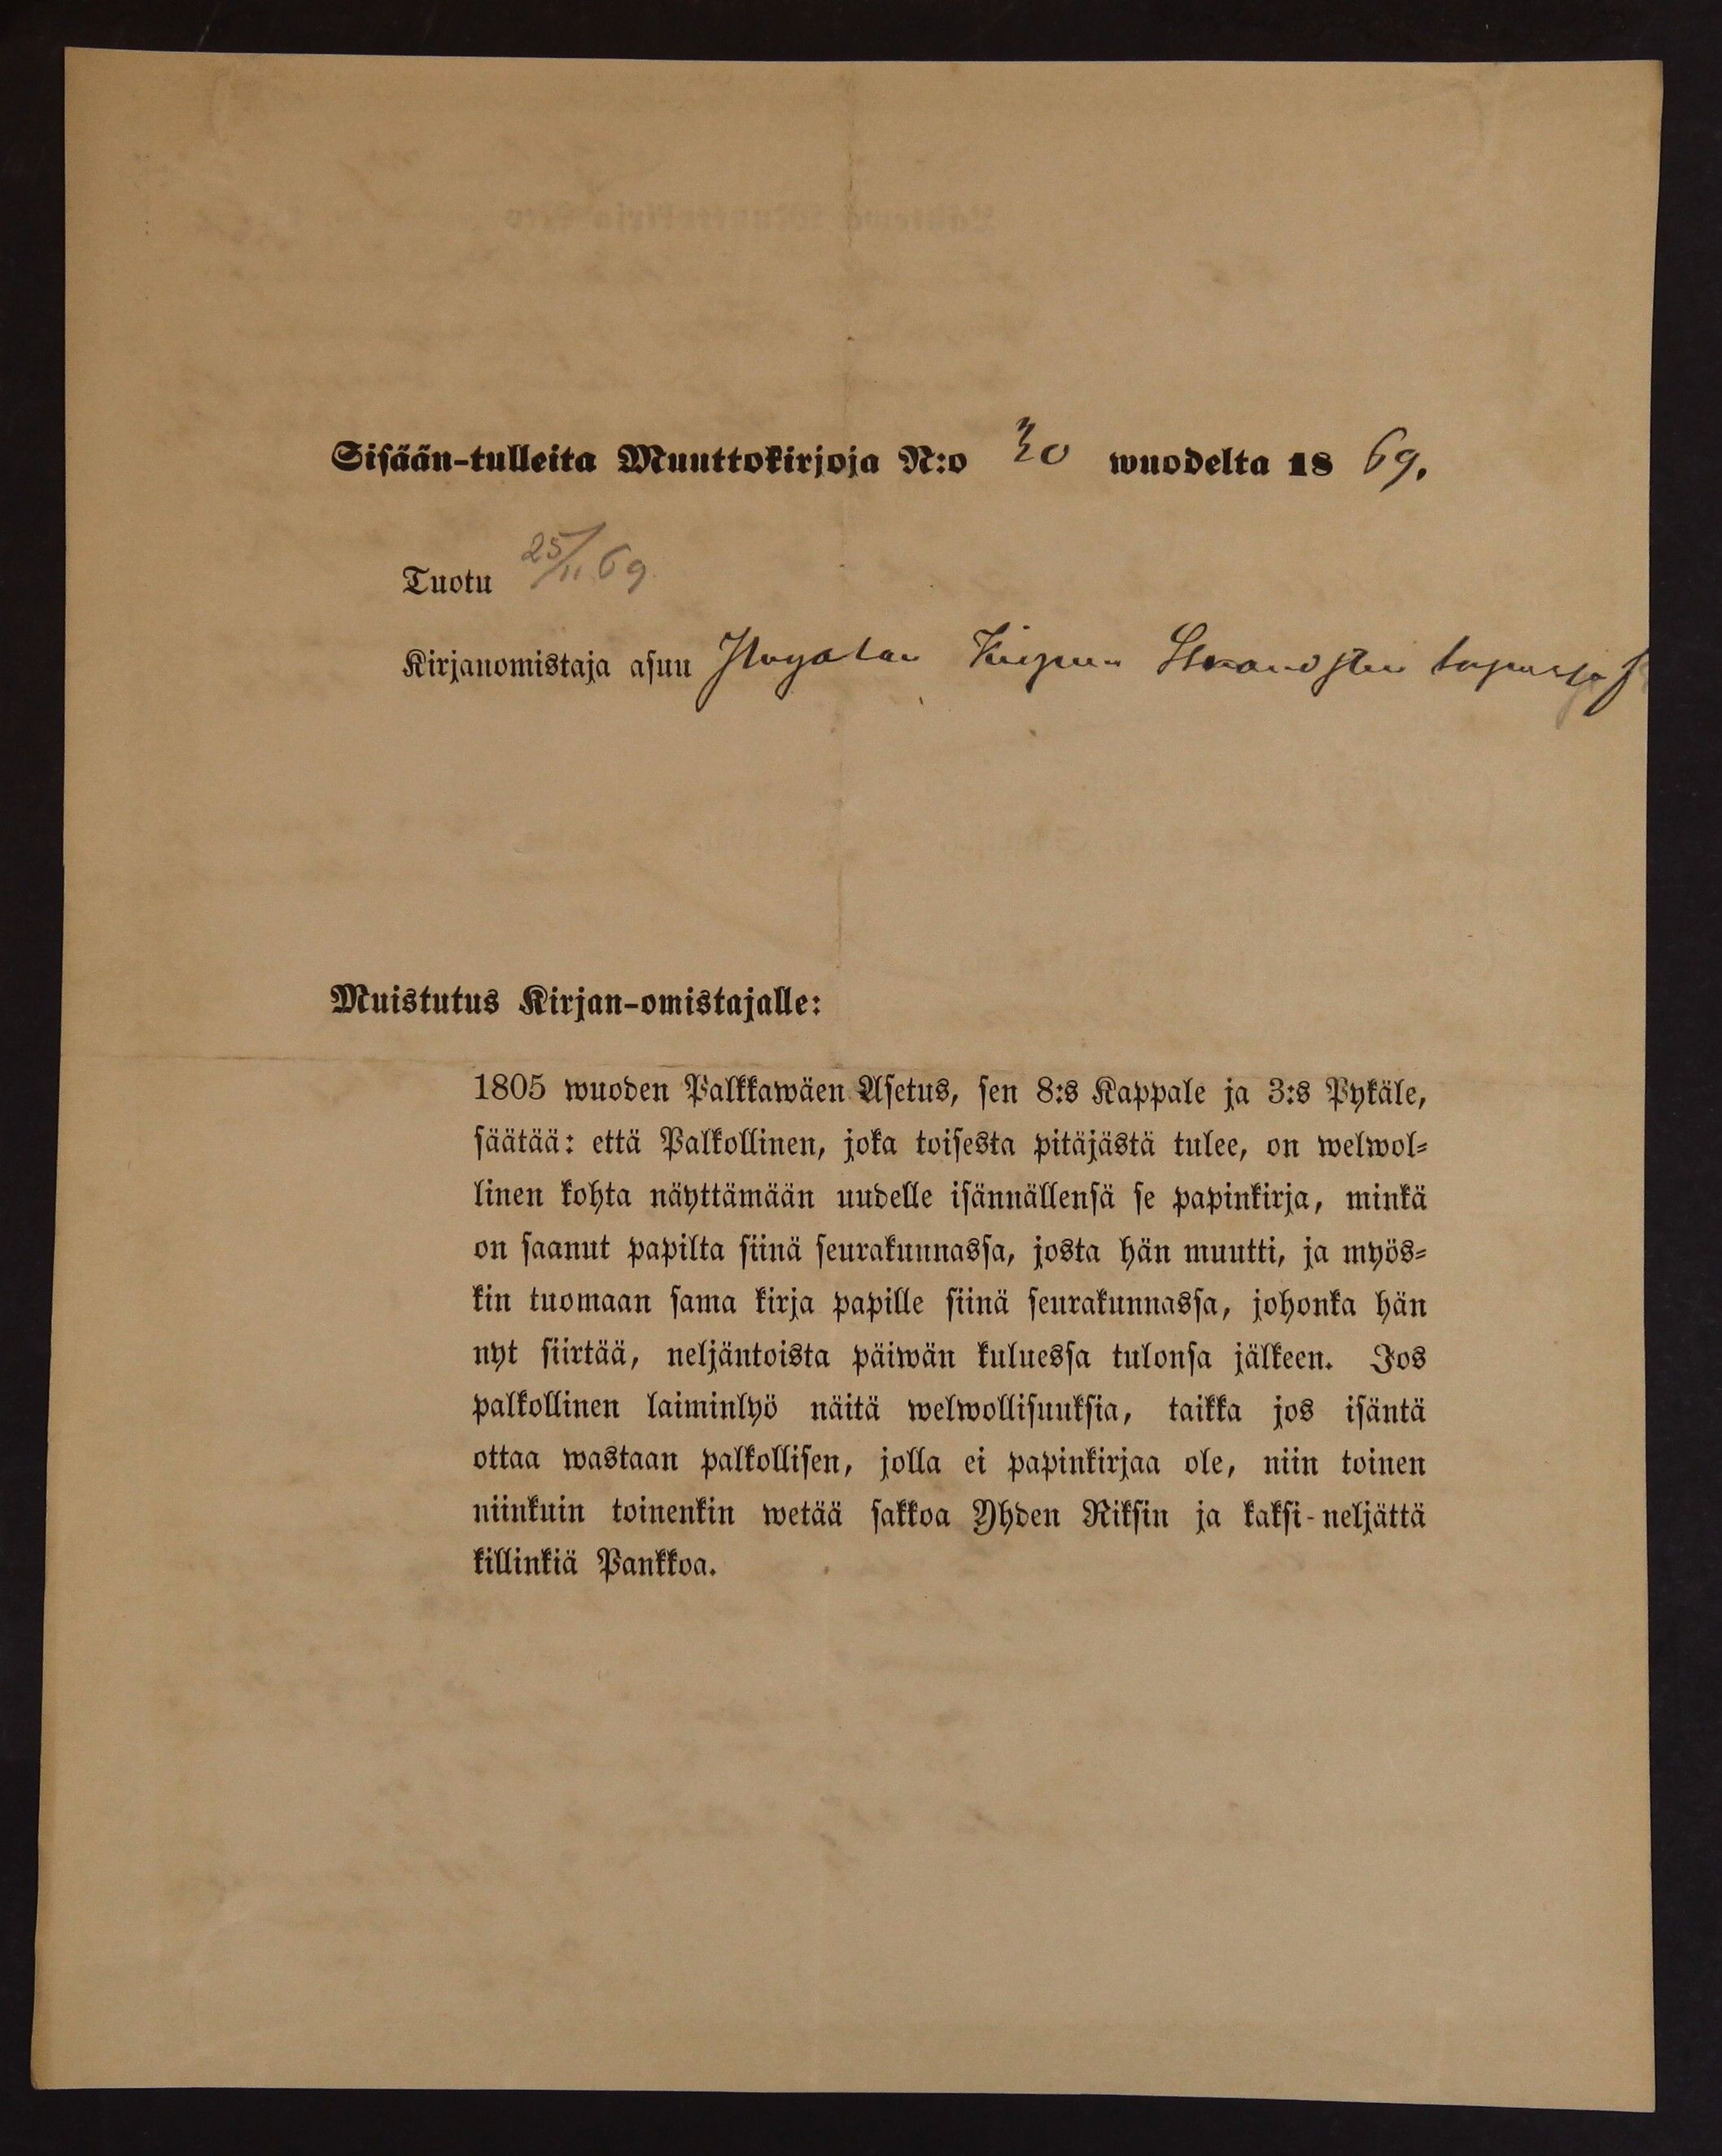 Sisään-tulleita Muuttokirjoja N:o 30 wuodelta 18 69.
Tuotu 25/11.69
Kirjanomistaja asuu
Muistutus Kirjan-omistajalle:
1805 wuoden Palkkawäen Asetus, sen 8:s Kappale ja 3:s Pykäle,
säätää: että Palkollinen, joka toisesta pitäjästä tulee, on welwol-
linen kohta näyttämään uudelle isännällensä se papinkirja, minkä
on saanut papilta siinä seurakunnassa, josta hän muutti, ja myös-
kin tuomaan sama kirja papille siinä seurakunnassa, johonka hän
nyt siirtää, neljäntoista päiwän kuluessa tulonsa jälkeen. Jos
palkollinen laiminlyö näitä welwollisuuksia, taikka jos isäntä
ottaa wastaan palkollisen, jolla ei papinkirjaa ole, niin toinen
niinkuin toinenkin wetää sakkoa Yhden Riksin ja kaksi-neljättä
killinkiä Pankkoa.